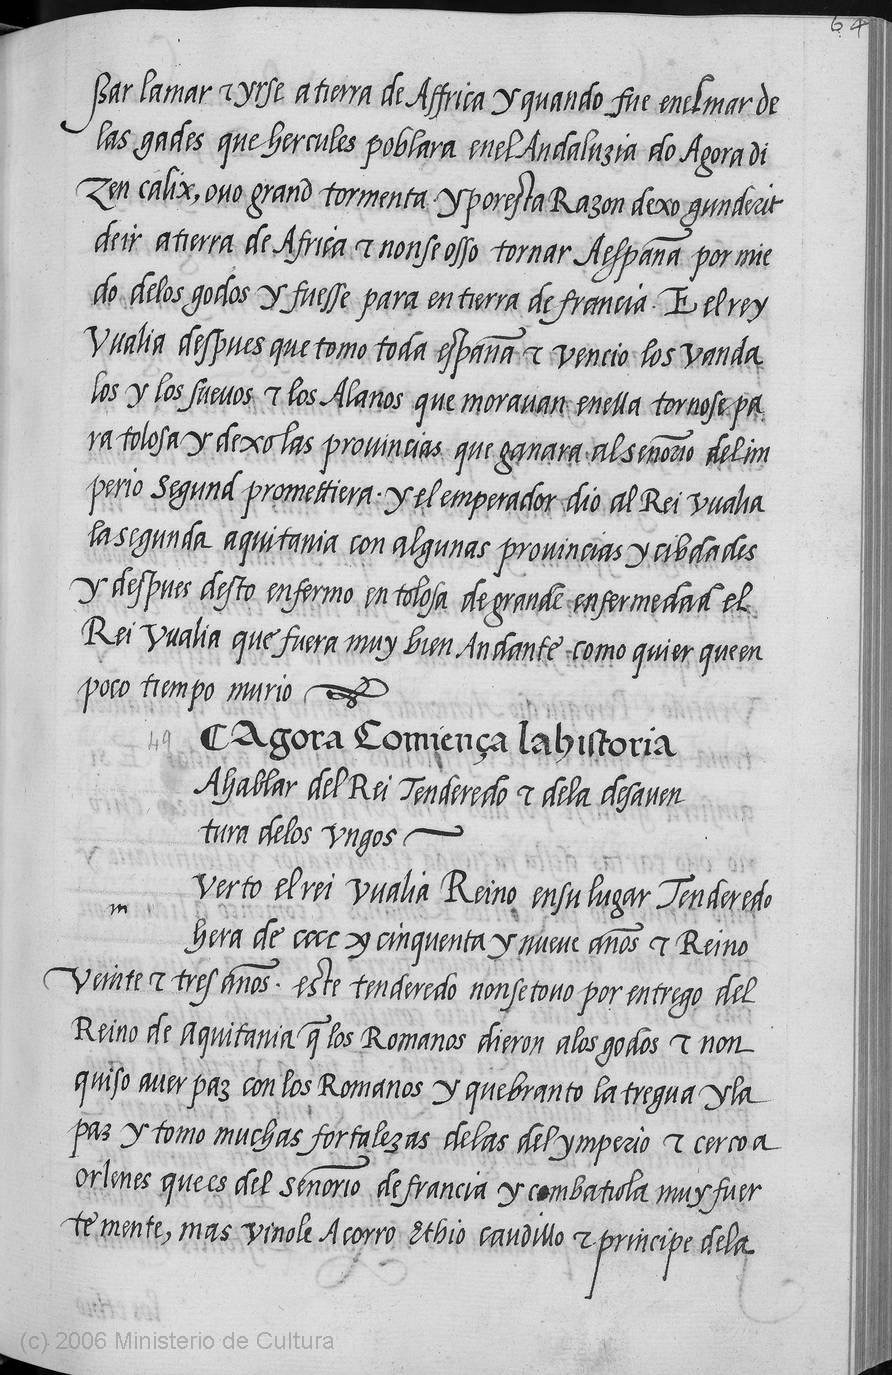 64
ssar lamar τ yrse atierra de Affrica y quando fue enel mar de
las gades que hercules poblara enel Andaluzia do Agora di
zen calix, ouo grand tormenta. y por esta Razon dexo gunderit
deir atierra de Africa τ nonse osso tornar Aespãna por mie
do delos godos y fuesse para en tierra de francia. E el rey
Vualia despues que tomo toda espãna τ vencio los vanda
los y los sueuos τ los Alanos que morauan enella tornose pa
ra tolosa y dexo las prouincias que ganara al señorio del im
perio Segund promettiera. y el emperador dio al Rei vualia
la segunda aquitania con algunas prouincias y cibdades
y despues desto enfermo en tolosa de grande enfermedad el
Rei Vualia que fuera muy bien Andante como quier que en
poco tiempo murio
49 Agora Comiença la historia
Ahablar del Rei Tenderedo τ dela desauen
tura delos vngos
m verto el rei Vualia Reino ensu lugar Tenderedo
hera de cccc y cinquenta y nueue años τ Reino
veinte τ tres años. este tenderedo nonse touo por entrego del
Reino de Aquitania q̃ los Romanos dieron alos godos τ non
quiso auer paz con los Romanos y quebranto la tregua y la
paz y tomo muchas fortalezas delas del ymperio τ cerco a
orlenes que es del señorio de francia y combatiola muy fuer
te mente, mas vinole Acorro Ethio caudillo τ principe dela
(c) 2006 Ministerio de Cultura